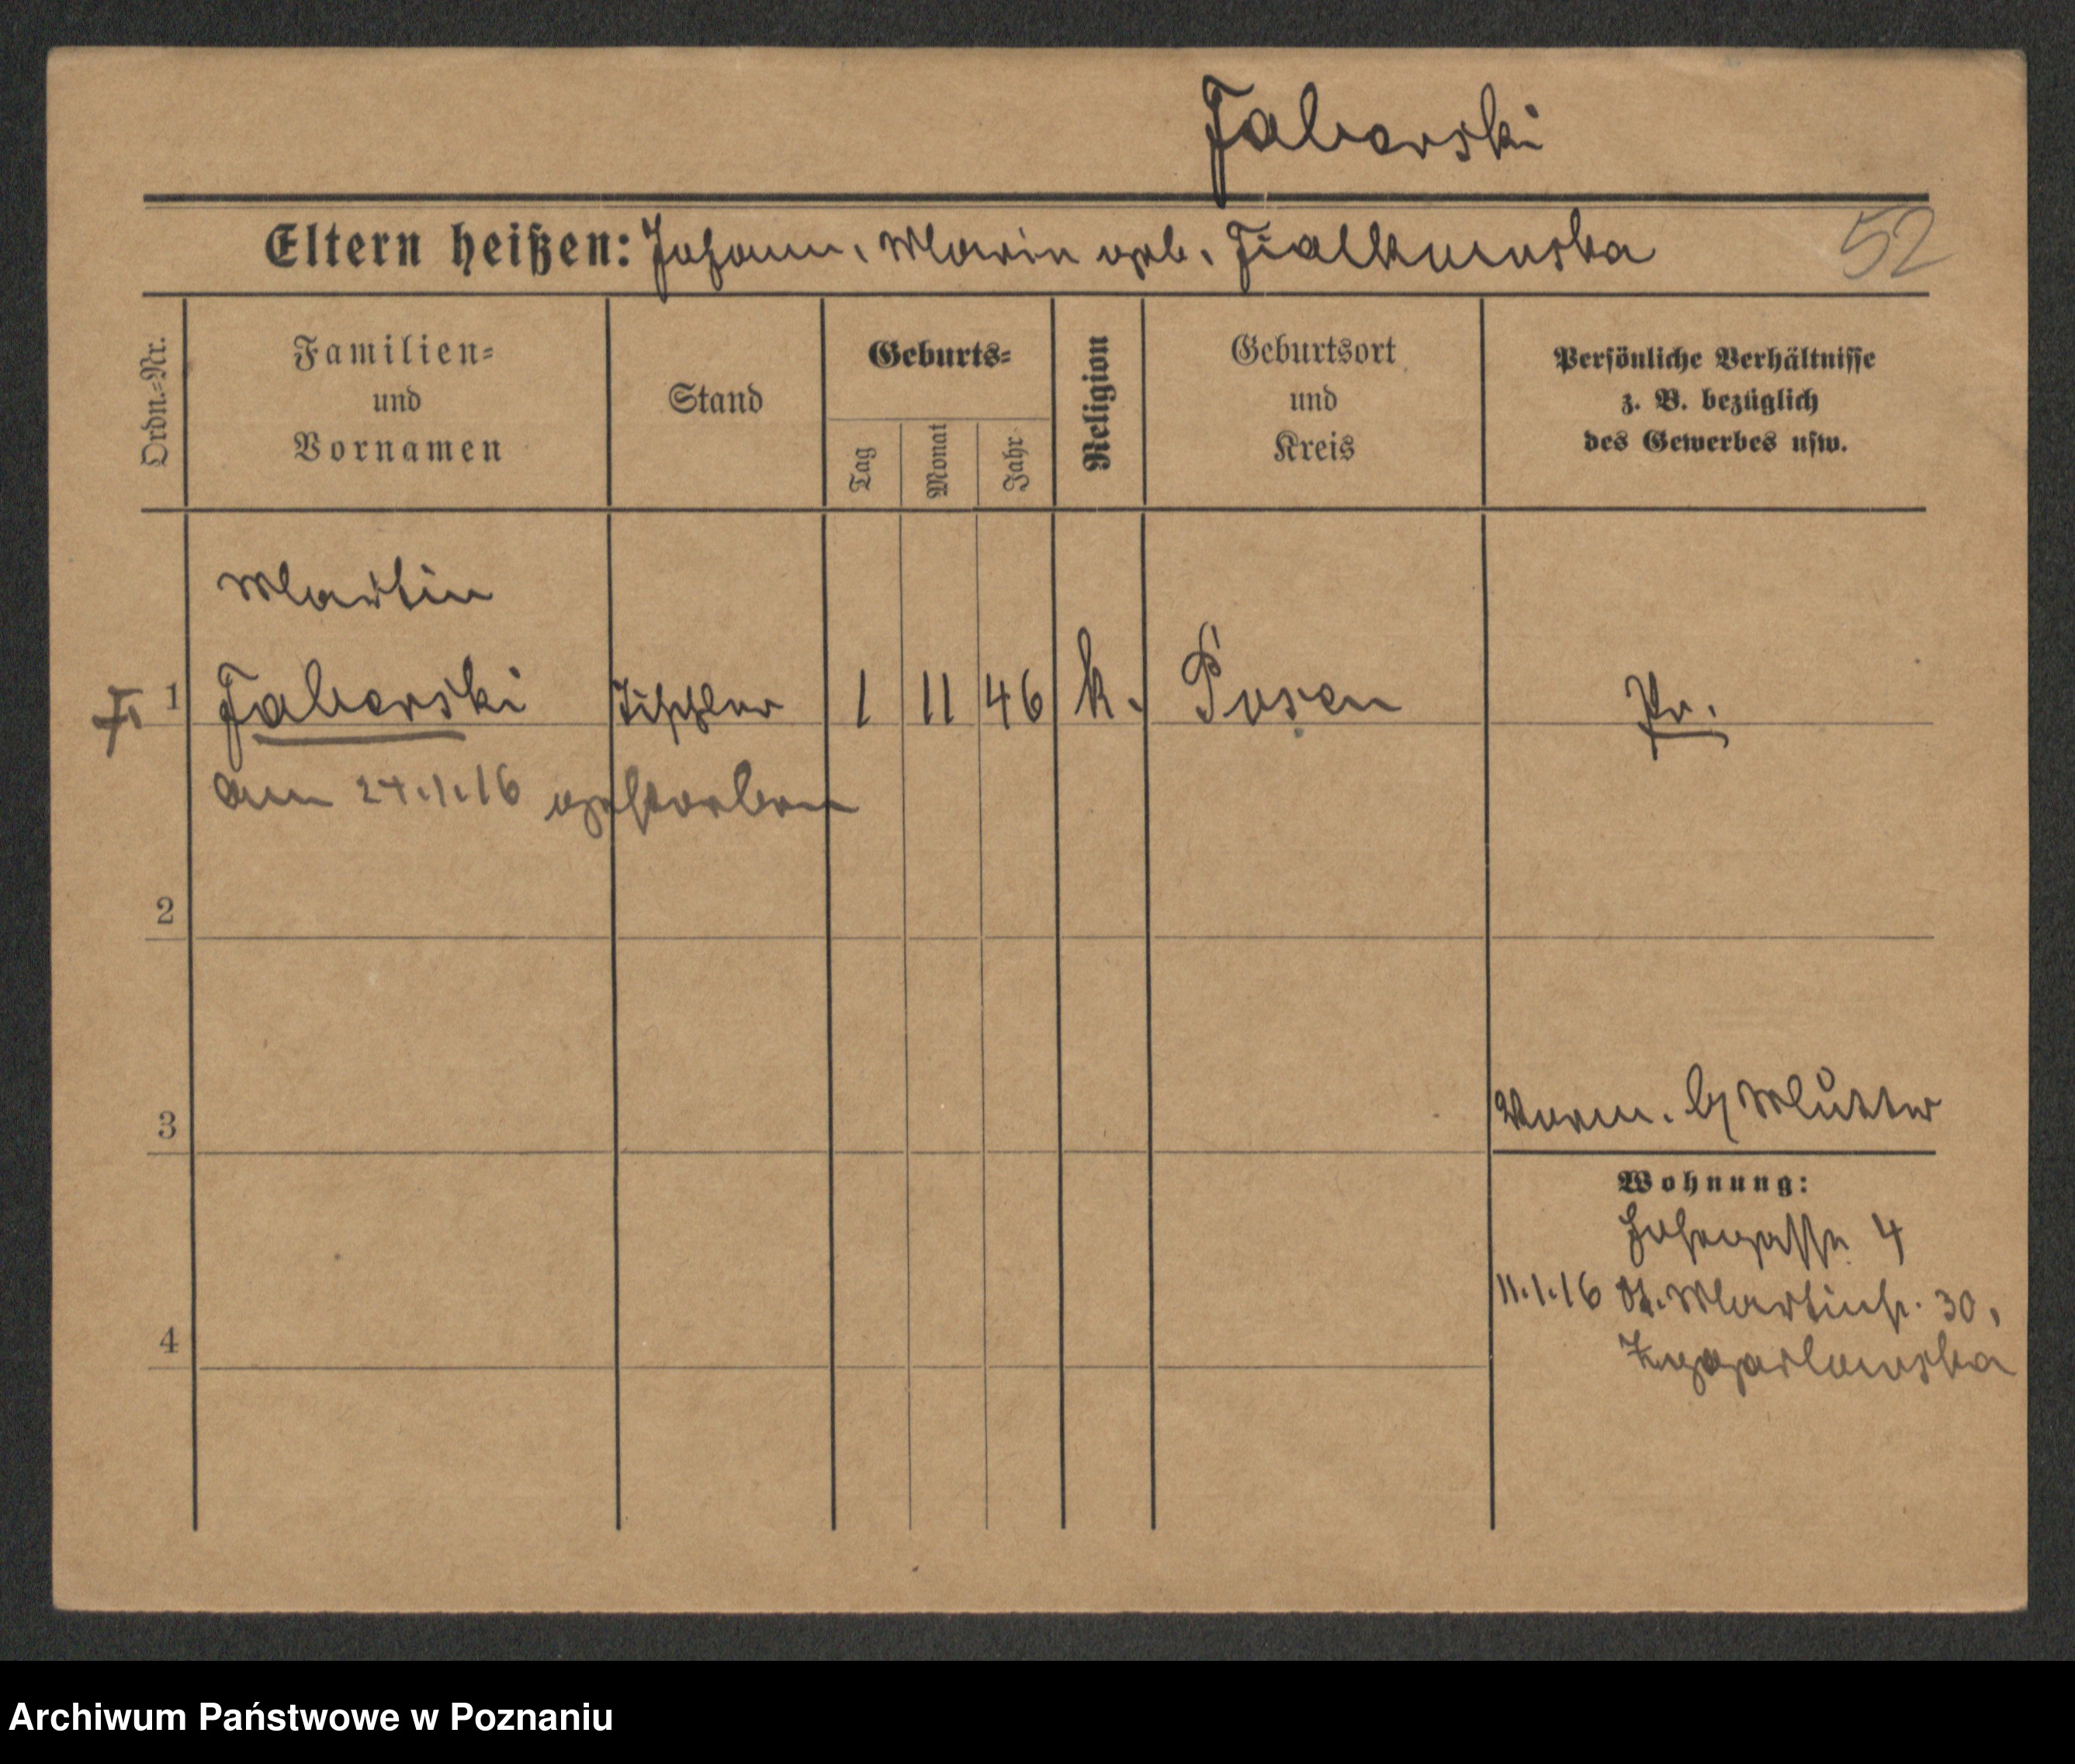 Faberski
Eltern heißen: Johann, Marie geb. Fialkowska
52
Ordn.=Nr.
Familien=
und
Vornamen
Stand
Geburts=
Tag
Monat
Jahr
Religion
Geburtsort
und
Kreis
Persönliche Verhältnisse
z. B. bezüglich
des Gewerbes usw.
Martin
1 Faberski Tischler 1 11 46 k. Posen Pr.
am 24.1.16 gestorben
2
3
Verm. b/ Mutter
Wohnung:
Hohegasse 4
11.1.16 St. Martinstr. 30,
4
Archiwum Państwowe w Poznaniu